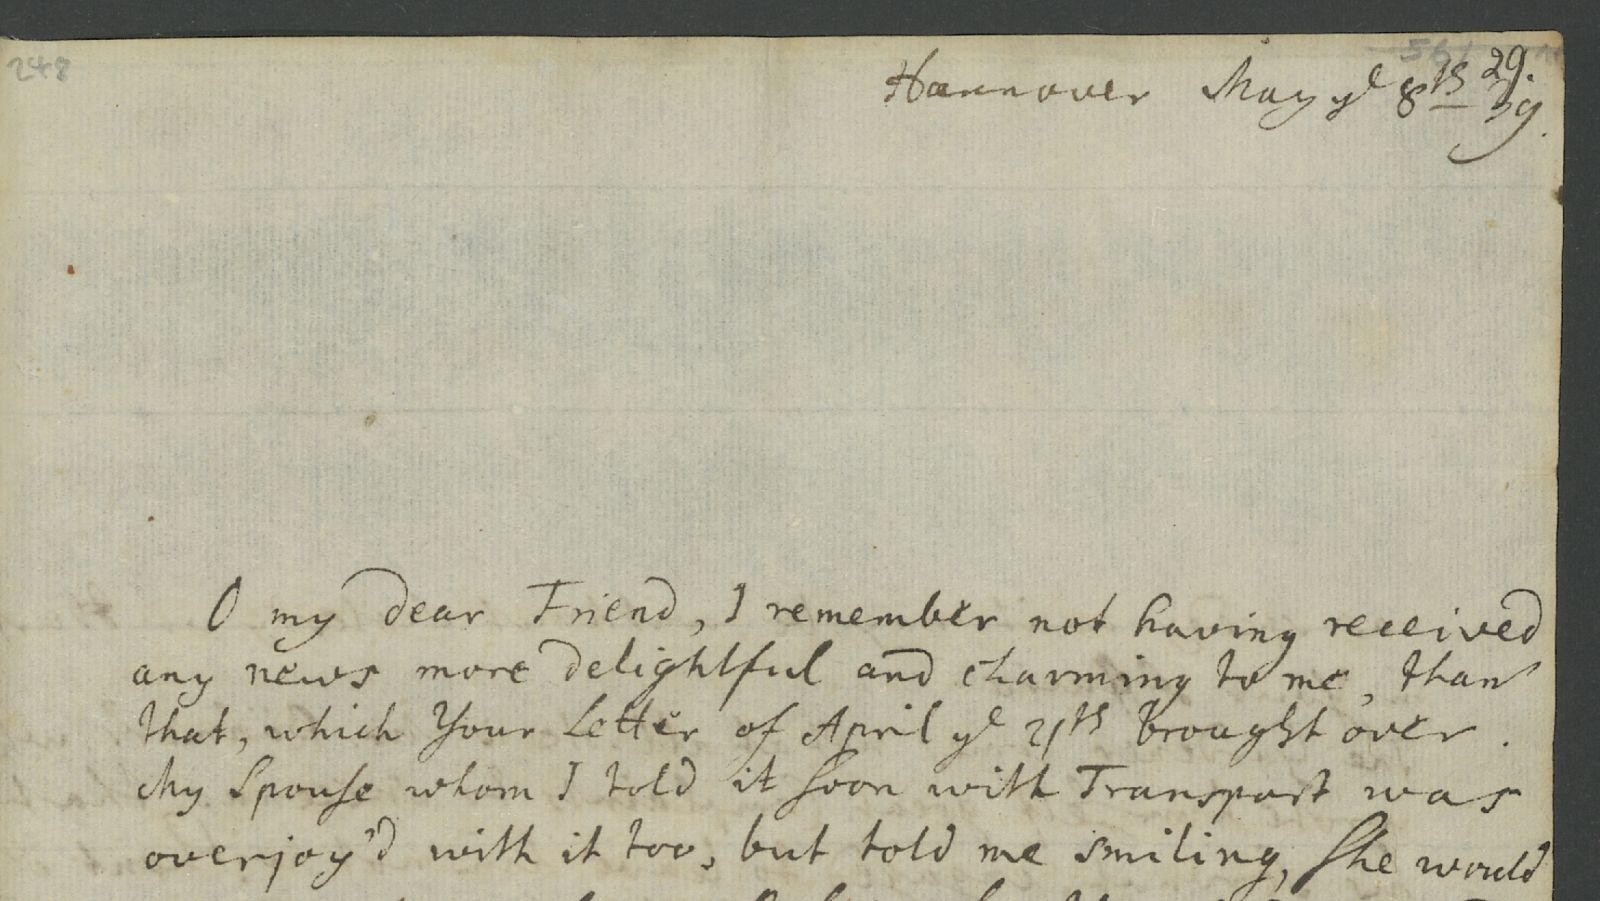 248
Hannover May yᵉ 8th 29.
39.
O my dear Friend, I remember not having received
any news more delightful and charming to me, than
that, which Your Letter of April yᵉ 21th brought over.
My Spouse whom I told it soon with Transport was
overjoy'd with it too, but told me smiling, She would